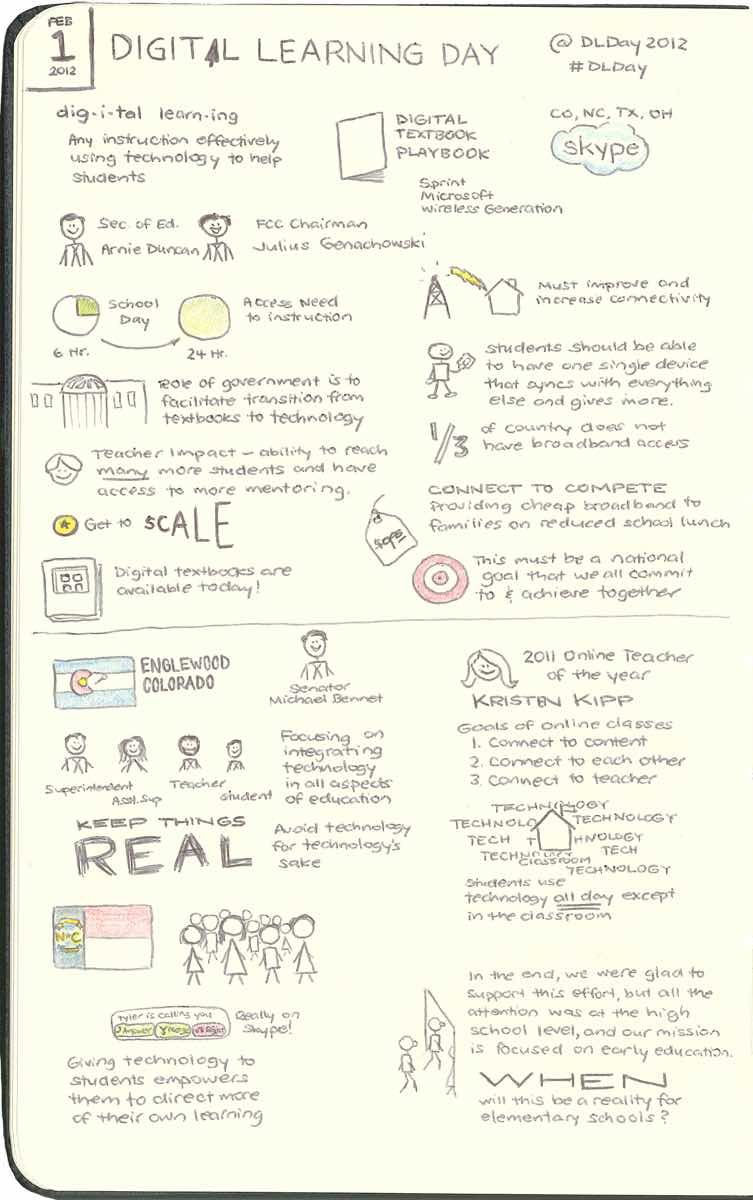 FEB
1
2012
DIGITAL LEARNING DAY
@DLDay2012
#DLDay
dig-i-tal learn-ing
Any instruction effectively
using technology to help
students
DIGITAL
TEXTBOOK
PLAYBOOK
Sprint
Microsoft
Wireless Generation
CO, NC, TX, OH
skype
Sec. of Ed.
Arnie Duncan
FCC Chairman
Julius Genachowski
School
Day
6 Hr.
24 Hr.
Access Need
to instruction
Must improve and
increase connectivity
Role of government is to
facilitate transition from
textbooks to technology
Students should be able
to have one single device
that syncs with everything
else and gives more.
1/3
of country does not
have broadband access
Teacher Impact – ability to reach
many more students and have
access to more mentoring.
Get to SCALE
CONNECT TO COMPETE
Providing cheap broadband to
families on reduced school lunch
Digital textbooks are
available today!
This must be a national
goal that we all commit
to & achieve together
ENGLEWOOD
COLORADO
Senator
Michael Bennet
Superintendent
Asst. Sup
Teacher
Student
Focusing on
integrating
technology
in all aspects
of education
KEEP THINGS
REAL
Avoid technology
for technology's
sake
2011 Online Teacher
of the year
KRISTEN KIPP
Goals of online classes
1. Connect to content
2. Connect to each other
3. Connect to teacher
TECHNOLOGY
TECHNOLO
TECHNOLOGY
TECH T
HNOLOGY
TECH
CLASSROOM
TECHNOLOGY
Students use
technology all day except
in the classroom
N C
Tyler is calling you
Answer
Reject
Really on
Skype!
Giving technology to
students empowers
them to direct more
of their own learning
In the end, we were glad to
support this effort, but all the
attention was at the high
school level, and our mission
is focused on early education.
WHEN
will this be a reality for
elementary schools?